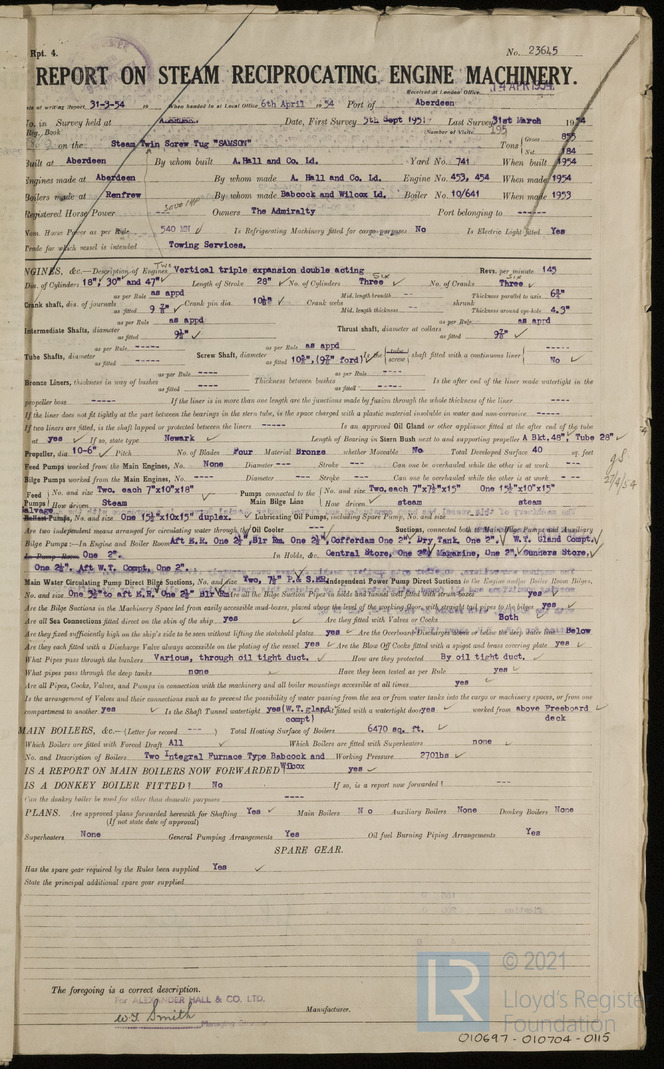 Rpt. 4. No. 23645
REPORT ON STEAM RECIPROCATING ENGINE MACHINERY.
Received at London Office 14 APR 1954
Date of writing Report 31-3-54 19 When handed in at Local Office 6th April 1954 Port of Aberdeen
No. in Survey held at Aberdeen. Date, First Survey 5th Sept 1951 Last Survey 31st March 1954
Reg. Book Number of Visits 195
on the Steam Twin Screw Tug "SAMSON" Tons Gross 855
Net 184
Built at Aberdeen By whom built A.Hall and Co. Ld. Yard No. 741 When built 1954
Engines made at Aberdeen By whom made A. Hall and Co. Ld. Engine No. 453, 454 When made 1954
Boilers made at Renfrew By whom made Babcock and Wilcox Ld. Boiler No. 10/641 When made 1953
Registered Horse Power Owners The Admiralty Port belonging to ------
Nom. Horse Power as per Rule 540 MN Is Refrigerating Machinery fitted for cargo purposes No Is Electric Light fitted Yes
Trade for which vessel is intended Towing Services.
ENGINES, &c.—Description of Engines Two Vertical triple expansion double acting Revs. per minute 145
Dia. of Cylinders 18", 30" and 47" Length of Stroke 28" No. of Cylinders Three Six No. of Cranks Three Six
Crank shaft, dia. of journals as per Rule as appd Crank pin dia. 10⅛" Crank webs Mid. length breadth -- shrunk Thickness parallel to axis 6¾"
as fitted 9⅞" Mid. length thickness --- Thickness around eye-hole 4.3"
Intermediate Shafts, diameter as per Rule as appd Thrust shaft, diameter at collars as per Rule as appd
as fitted 9½" as fitted 9⅞"
Tube Shafts, diameter as per Rule ----- Screw Shaft, diameter as per Rule as appd Is the tube screw shaft fitted with a continuous liner -----
as fitted ----- as fitted 10⅜",(9⅞" ford) No
Bronze Liners, thickness in way of bushes as per Rule ---- Thickness between bushes as per Rule ---- Is the after end of the liner made watertight in the
as fitted ---- as fitted ----
propeller boss ----- If the liner is in more than one length are the junctions made by fusion through the whole thickness of the liner ----
If the liner does not fit tightly at the part between the bearings in the stern tube, is the space charged with a plastic material insoluble in water and non-corrosive -----
If two liners are fitted, is the shaft lapped or protected between the liners ----- Is an approved Oil Gland or other appliance fitted at the after end of the tube
shaft yes If so, state type Newark Length of Bearing in Stern Bush next to and supporting propeller A Bkt.48", Tube 28"
Propeller, dia 10-6" Pitch No. of Blades Four Material Bronze whether Moveable No Total Developed Surface 40 sq. feet
Feed Pumps worked from the Main Engines, No. None Diameter --- Stroke --- Can one be overhauled while the other is at work ----
Bilge Pumps worked from the Main Engines, No. ---- Diameter --- Stroke --- Can one be overhauled while the other is at work ----
Feed Pumps No. and size Two, each 7"x10"x18" Pumps connected to the Main Bilge Line No. and size Two,each 7"x7½"x15" One 15½"x10"x15"
How driven Steam How driven steam steam
Salvage
Ballast Pumps, No. and size One 15½"x10x15" duplex. Lubricating Oil Pumps, including Spare Pump, No. and size
Are two independent means arranged for circulating water through the Oil Cooler Suctions, connected both to Main Bilge Pumps and Auxiliary
Bilge Pumps:—In Engine and Boiler Room Aft E.R. One 2½" Blr Rm. One 2½" Cofferdam One 2", Dry Tank, One 2", W.T. Gland Compt.
In Pump Room One 2". In Holds, &c. Central Store, One 2" Magazine, One 2", Gunners Store,
One 2". Aft W.T. Compt, One 2".
Main Water Circulating Pump Direct Bilge Suctions, No. and size Two, 7½" P.& S.ER Independent Power Pump Direct Suctions to the Engine and/or Boiler Room Bilges,
No. and size One 3½" to aft E.R. One 2½" Blr Rm Are all the Bilge Suction Pipes in holds and tunnel well fitted with strum-boxes yes
Are the Bilge Suctions in the Machinery Space led from easily accessible mud-boxes, placed above the level of the working floor, with straight tail pipes to the bilges yes
Are all Sea Connections fitted direct on the skin of the ship yes Are they fitted with Valves or Cocks Both
Are they fixed sufficiently high on the ship's side to be seen without lifting the stokehold plates yes Are the Overboard Discharges above or below the deep water line Below
Are they each fitted with a Discharge Valve always accessible on the plating of the vessel yes Are the Blow Off Cocks fitted with a spigot and brass covering plate yes
What Pipes pass through the bunkers Various, through oil tight duct. How are they protected By oil tight duct.
What pipes pass through the deep tanks none Have they been tested as per Rule yes
Are all Pipes, Cocks, Valves, and Pumps in connection with the machinery and all boiler mountings accessible at all times yes
Is the arrangement of Valves and their connections such as to prevent the possibility of water passing from the sea or from water tanks into the cargo or machinery spaces, or from one
compartment to another yes Is the Shaft Tunnel watertight yes(W.T.gland compt) fitted with a watertight door yes worked from above Freeboard deck
MAIN BOILERS, &c.—(Letter for record ---) Total Heating Surface of Boilers 6470 sq. ft.
Which Boilers are fitted with Forced Draft All Which Boilers are fitted with Superheaters none
No. and Description of Boilers Two Integral Furnace Type Babcock and Wilcox Working Pressure 270lbs
IS A REPORT ON MAIN BOILERS NOW FORWARDED yes
IS A DONKEY BOILER FITTED? No If so, is a report now forwarded? ---
Can the donkey boiler be used for other than domestic purposes ----
PLANS. Are approved plans forwarded herewith for Shafting Yes Main Boilers No Auxiliary Boilers None Donkey Boilers None
(If not state date of approval)
Superheaters None General Pumping Arrangements Yes Oil fuel Burning Piping Arrangements Yes
SPARE GEAR.
Has the spare gear required by the Rules been supplied Yes
State the principal additional spare gear supplied
The foregoing is a correct description.
For ALEXANDER HALL & CO. LTD.
W.J. Smith Manufacturer.
© 2021
LR Lloyd's Register
Foundation
010697-010704-0115